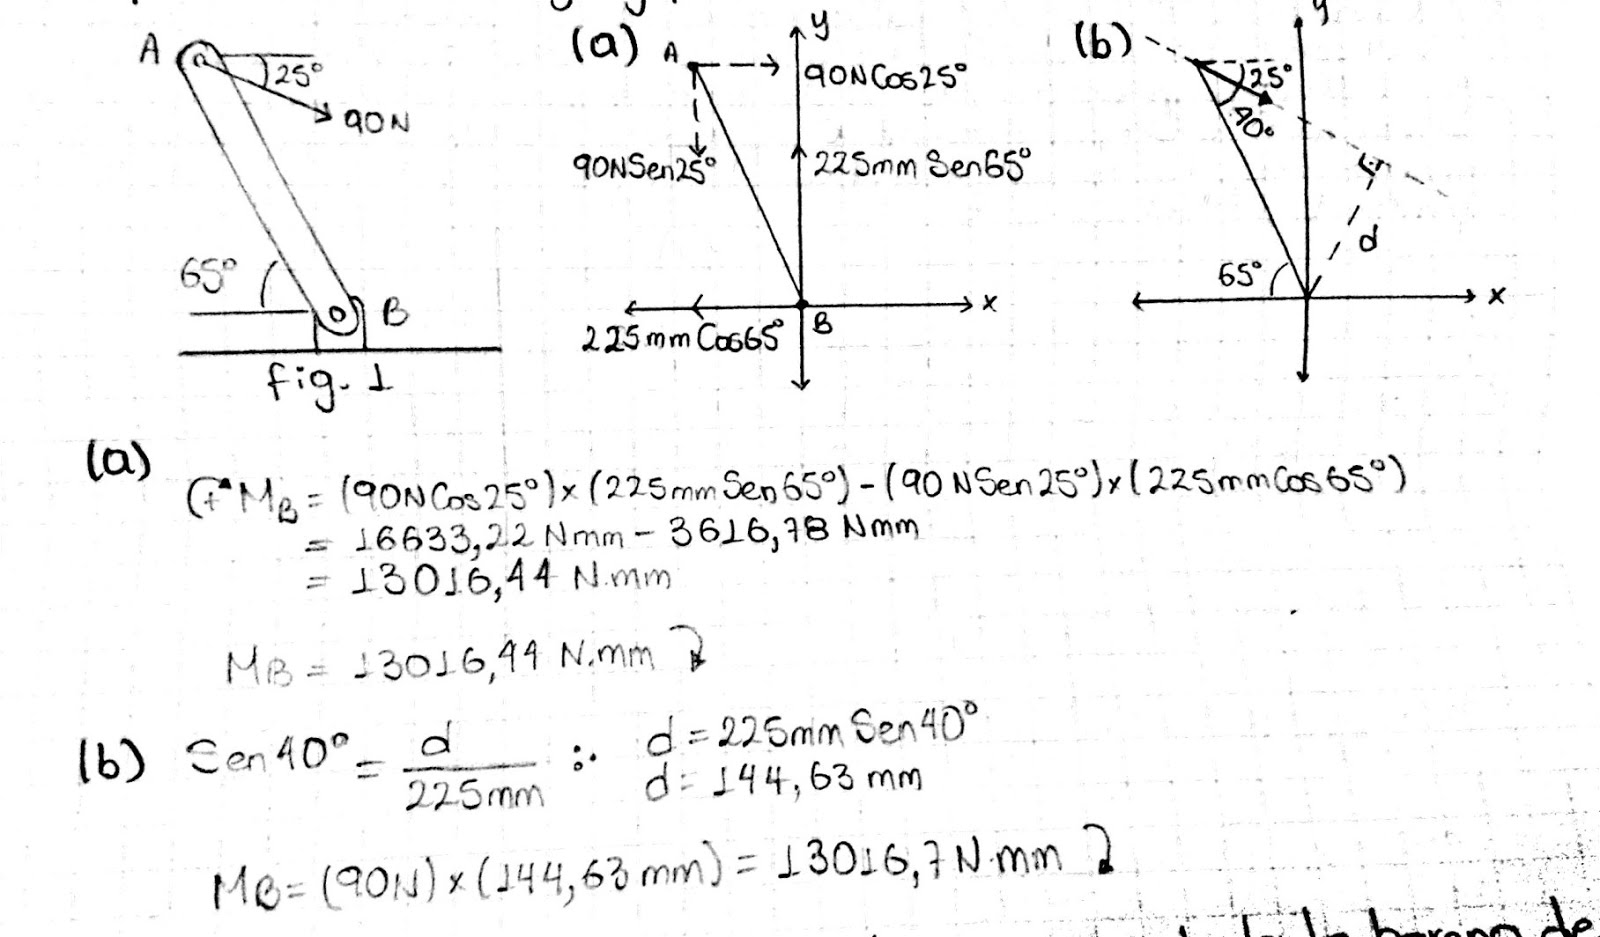 A
25°
90N
65°
B
fig. 1
(a)
A
y
90NCos25°
90NSen25°
225mm Sen65°
x
225mmCos65°
B
(b)
y
25°
40°
d
65°
x
(a)
(+ MB = (90NCos25°)x(225mmSen65°)-(90NSen25°)x(225mmCos65°)
= 16633,22 Nmm - 3616,78 Nmm
= 13016,44 N.mm
MB = 13016,44 N.mm
(b) Sen40° = d/225mm ∴ d = 225mm Sen40°
d = 144,63 mm
MB = (90N)x(144,63mm) = 13016,7 N.mm
de